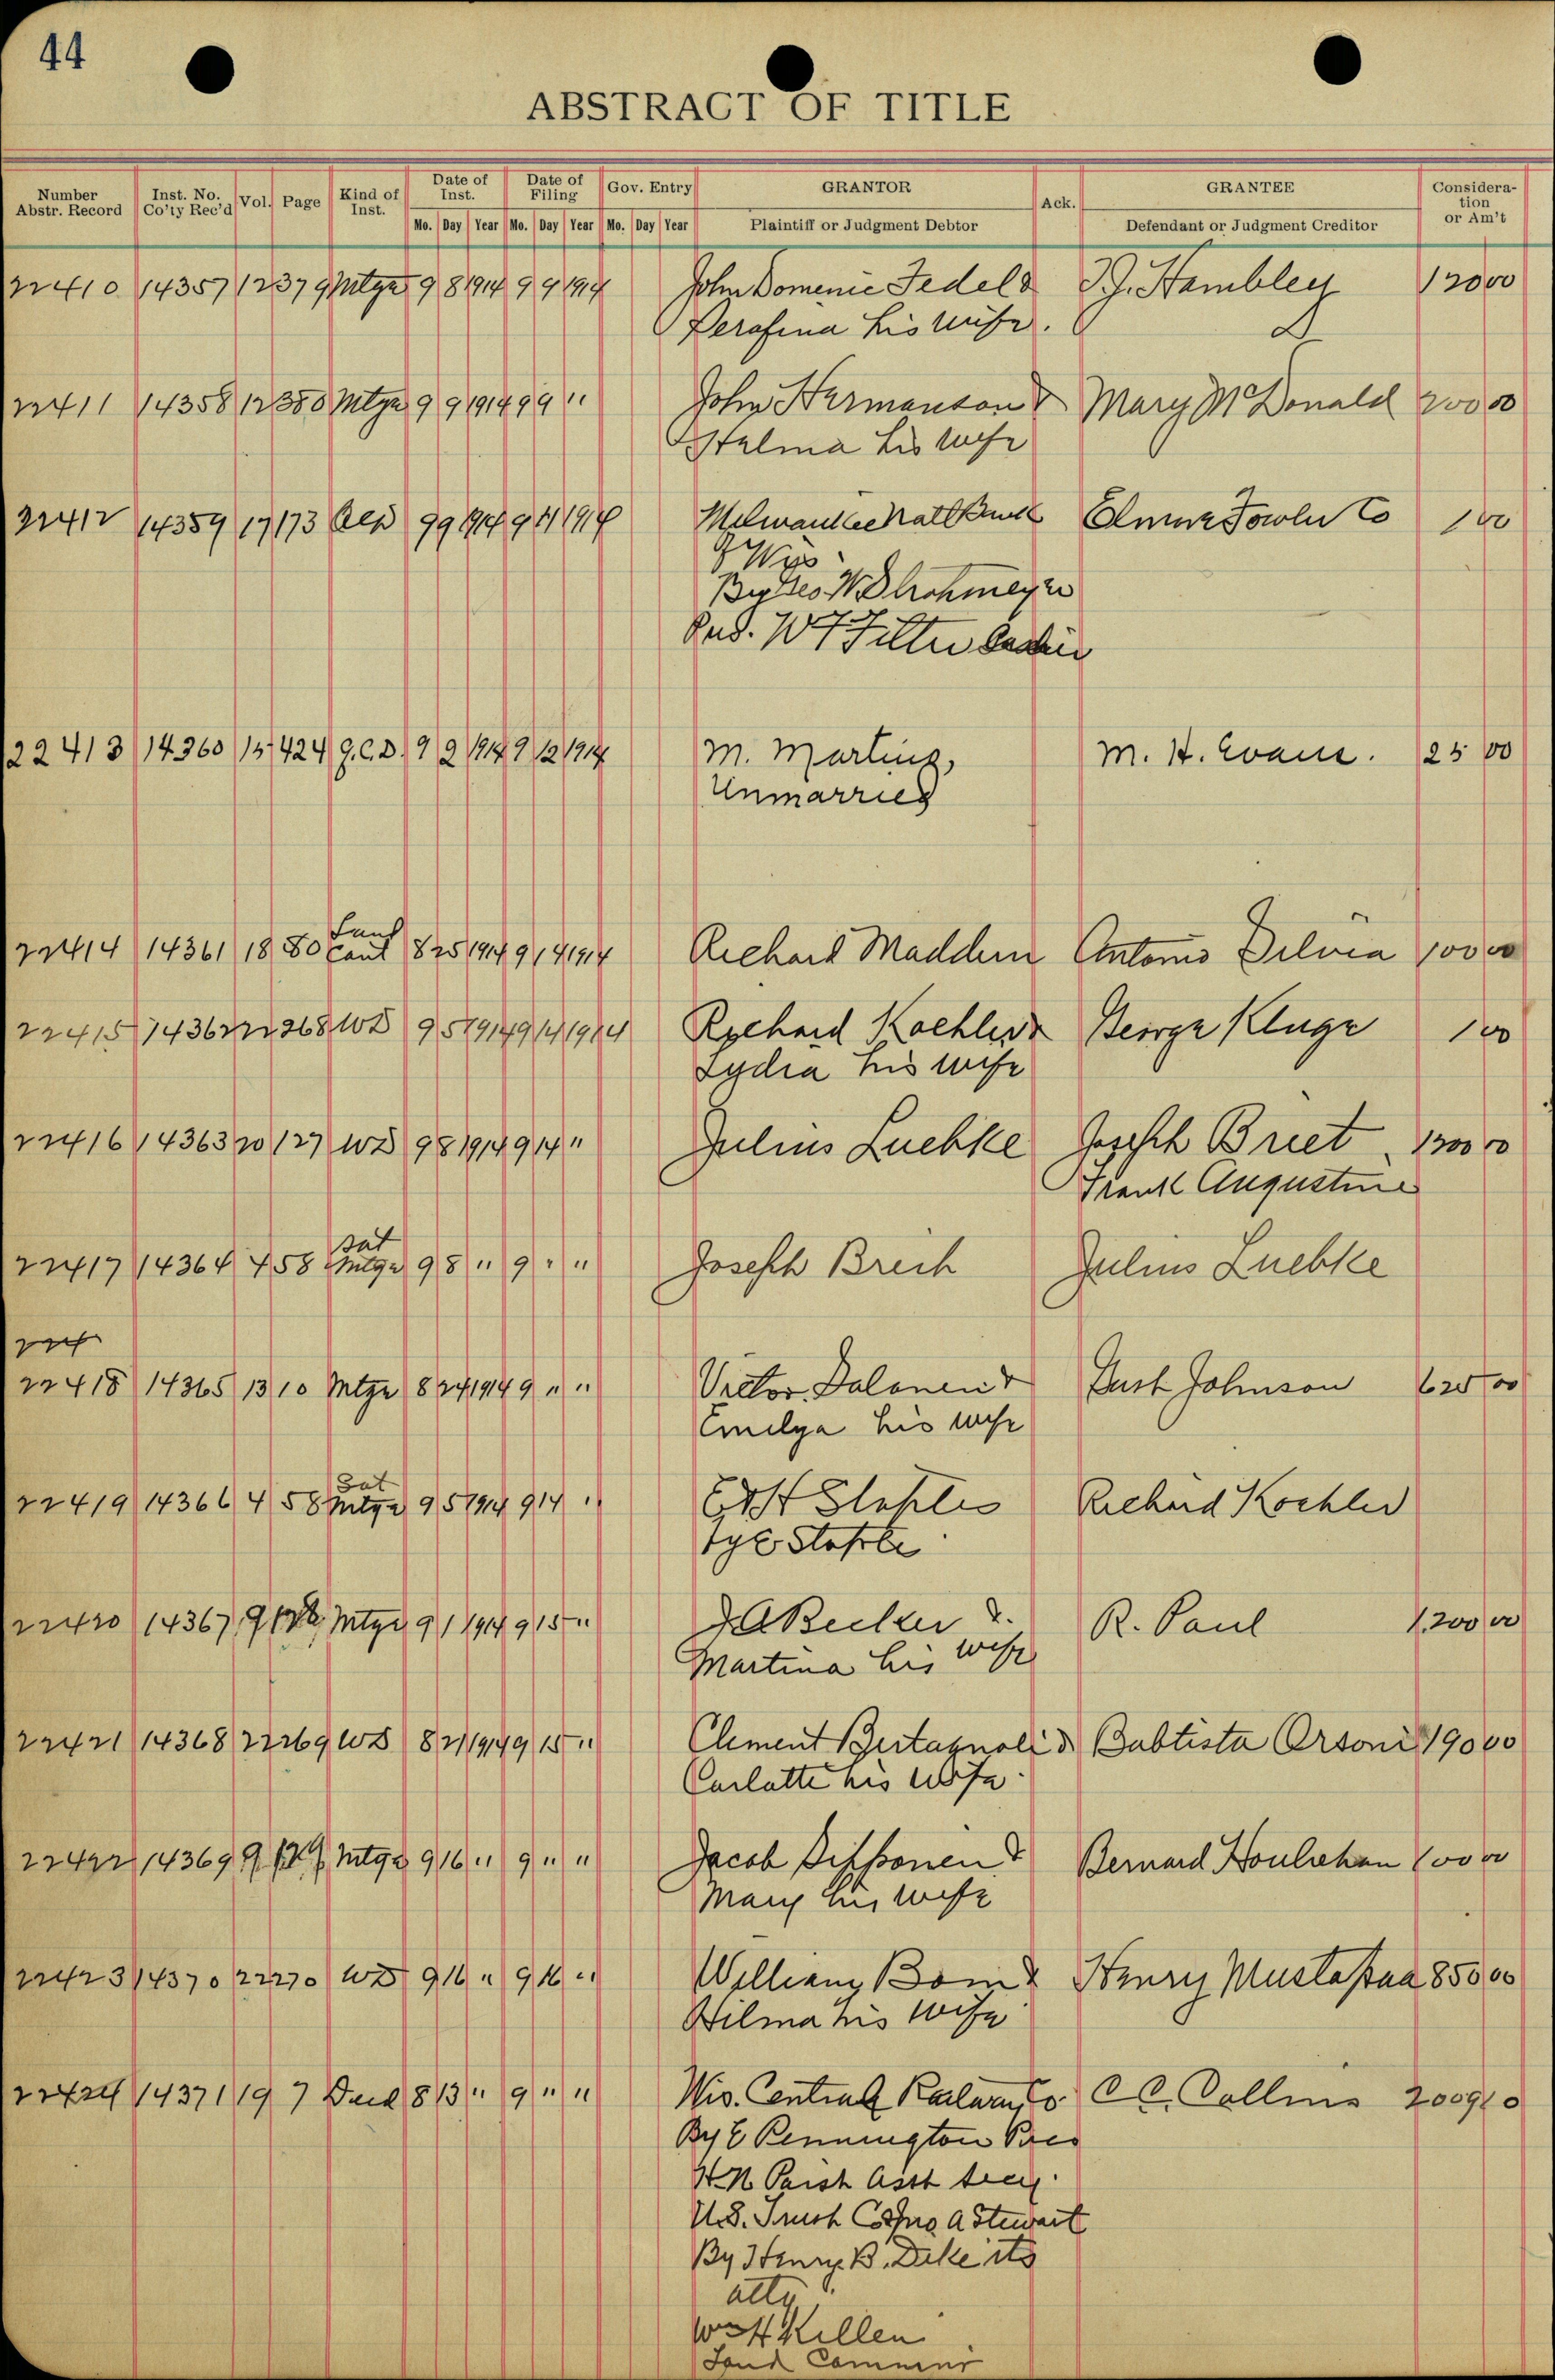 44
ABSTRACT OF TITLE
Number Abstr. Record Inst. No. Co'ty Rec'd Vol. Page Kind of Inst. Date of Inst. Date of Filing Gov. Entry GRANTOR Ack. GRANTEE Consideration or Am't
Mo. Day Year Mo. Day Year Mo. Day Year Plaintiff or Judgment Debtor Defendant or Judgment Creditor
22410 14357 12 379 Mtge 9 8 1914 9 9 1914 John Domenic Fedel & J. Hambley 120 00
Serafina his wife.
22411 14358 12 380 Mtge 9 9 1914 9 9 " John Hermanson & Mary McDonald 200 00
Halma his wife
22412 14359 17 173 9 9 1914 9 11 1914 Milwaukee Natl Bank Elmore Fowler Co 1 00
of Wis
By Geo W Strohmeyer
W F Filter Cashier
22413 14360 15 424 Q.C.D. 9 9 1914 9 12 1914 M. Martins, M. H. Evans. 25 00
Unmarried
22414 14361 18 80 Land Cont 8 25 1914 9 14 1914 Richard Maddern Antonio Silvia 100 00
22415 14362 22 268 WD 9 5 1914 9 14 1914 Richard Koehler & George Kluge 1 00
Lydia his wife
22416 14363 20 127 WD 9 8 1914 9 14 " Julius Luebke Joseph Briet 1200 00
Frank Augustine
22417 14364 4 58 Sat Mtge 9 8 " 9 " " Joseph Breih Julius Luebke
224
22418 14365 13 10 Mtge 8 24 1914 9 " " Victor Salonen & Gust Johnson 625 00
Emelya his wife
22419 14366 4 58 Sat Mtge 9 5 1914 9 14 " Staples Richard Koehler
Staple
22420 14367 9 128 Mtge 9 1 1914 9 15 " J A Becker & R. Paul 1,200 00
Martina his wife
22421 14368 22 269 WD 8 21 1914 9 15 " Clement Bertagnoli & Babtista Orsoni 190 00
Carlatte his wife.
22422 14369 9 129 Mtge 9 16 " 9 " " Jacob Sipponen & Bernard Houlehan
Mary his wife
22423 14370 22 270 WD 9 16 " 9 16 " William Bom & Henry Mustapaa 850 00
Hilma his wife
22424 14371 19 7 Deed 8 13 " 9 " " Wis. Central Railway Co C C. Collins 2009 10
By E Pennington Pres
Parish Asst Secy.
U.S. Trust Co Jno A Stewart
By Henry B. Deke its
atty
W H Killen
Land Commnr